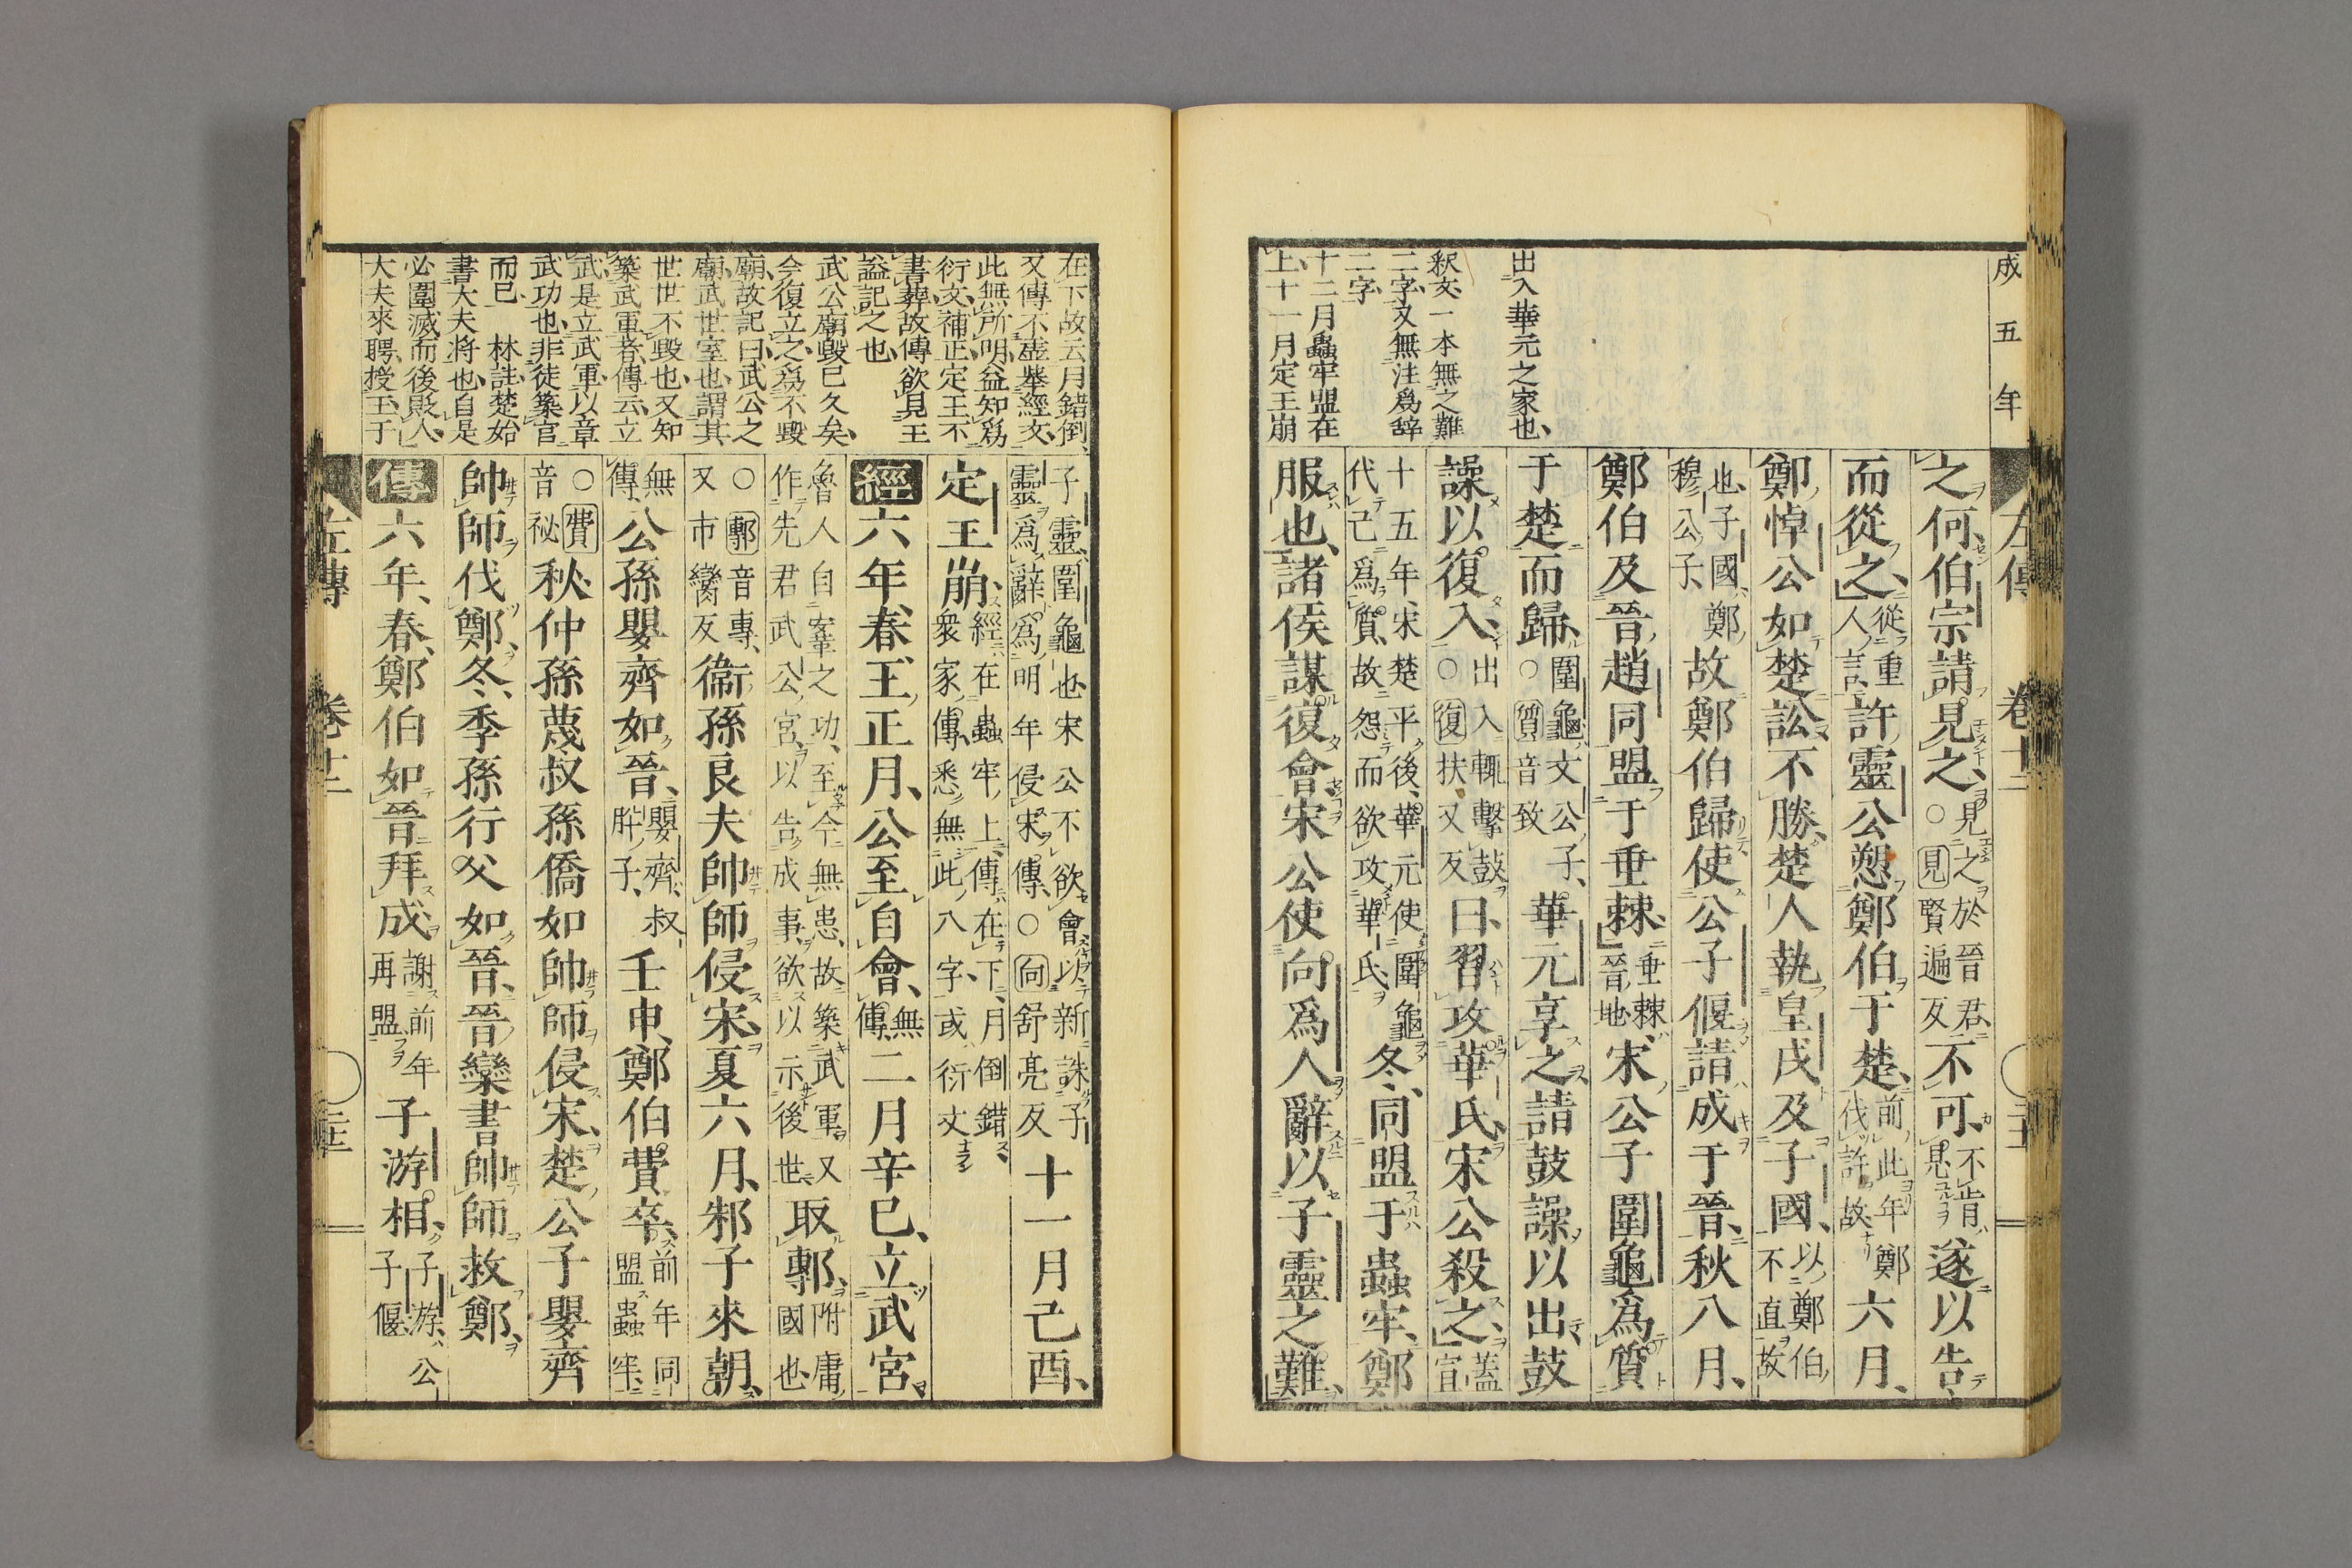 成五年
左傳 卷十二
出入華元之家也
釈文一本無之難
二字又無注爲辞
二字
十二月蟲牢盟在
上十一月定王崩
之何伯宗請見之見之於晉君○見賢遍反不可不肯見遂以告
而從之從重人言許靈公愬鄭伯于楚前此年鄭伐許故六月
鄭悼公如楚訟不勝楚人執皇戌及子國以鄭伯不直故
也子國鄭穆公子故鄭伯歸使公子偃請成于晉秋八月
鄭伯及晉趙同盟于垂棘垂棘晉地宋公子圍龜爲質
于楚而歸圍龜文公子○質音致華元享之請鼓譟以出鼓
譟以復入出入輒擊鼓○復扶又反曰習攻華氏宋公殺之蓋宣
十五年宋楚平後華元使圍龜代己爲質故怨而欲攻華氏冬同盟于蟲牢鄭
服也諸侯謀復會宋公使向爲人辭以子靈之難
在下故云月錯倒
又傳不虚擧經文
此無所明益知爲
衍文補正定王不
書葬故傳欲見王
謚記之也
武公廟毀已久矣
今復立之爲不毀
廟故記曰武公之
廟武世室也謂其
世世不毀也又知
築武軍者傳云立
武是立武軍以章
武功也非徒築官
而已 林註楚始
書大夫将也自是
必圍滅而後敗人
大夫來聘授玉于
子靈圍龜也宋公不欲會以新誅子靈爲辭爲明年侵宋傳○向舒亮反十一月己酉
定王崩經在蟲牢上傳在下月倒錯衆家傳悉無此八字或衍文
經六年春王正月公至自會無傳二月辛巳立武宮
魯人自鞌之功至今無患故築武軍又作先君武公宮以告成事欲以示後世取鄟附庸國也
○鄟音專又市臠反衛孫良夫帥師侵宋夏六月邾子來朝
無傳公孫嬰齊如晉嬰齊叔肸子壬申鄭伯費卒前年同盟蟲牢
○費音祕秋仲孫蔑叔孫僑如帥師侵宋楚公子嬰齊
帥師伐鄭冬季孫行父如晉晉欒書帥師救鄭
傳六年春鄭伯如晉拜成謝前年再盟子游相子游公子偃
左傳 卷十二